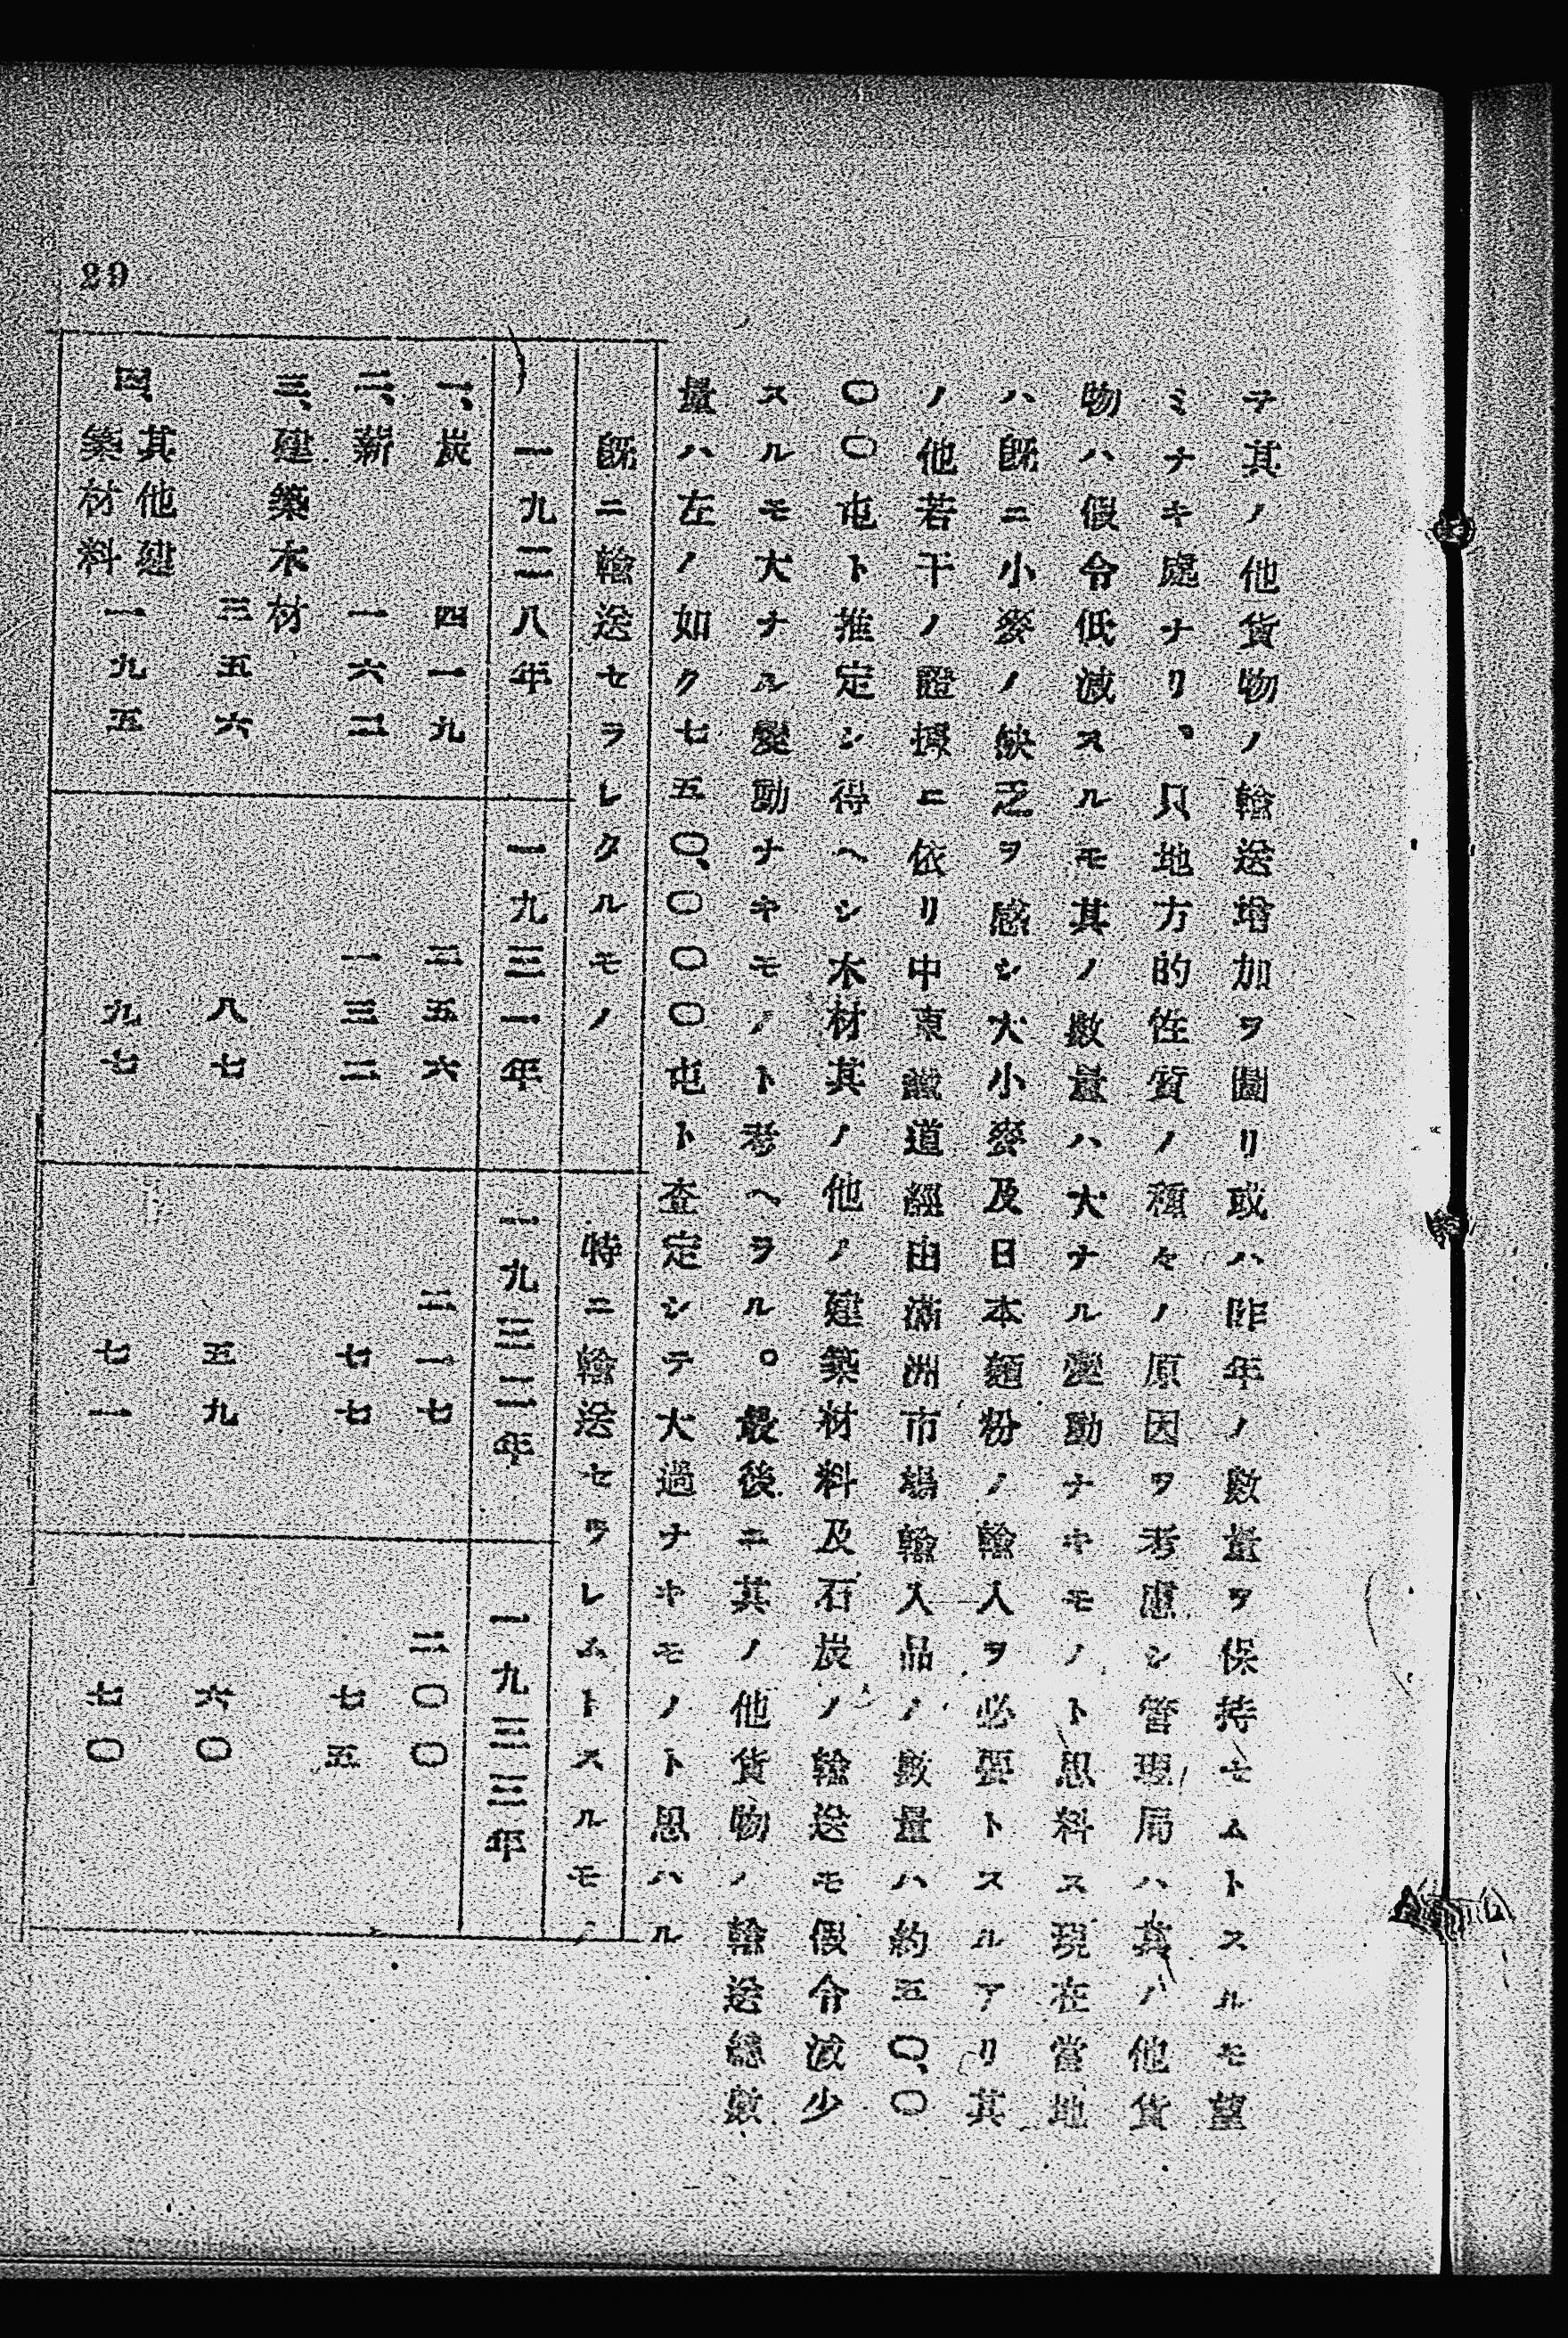 テ其ノ他貨物ノ輸送増加ヲ圖リ或ハ昨年ノ數量ヲ保持セムトスルモ望
ミナキ處ナリ、只地方的性質ノ種々ノ原因ヲ考慮シ管理局ハ其ノ他貨
物ハ假令低減スルモ其ノ數量ハ大ナル變動ナキモノト思料ス現在當地
ハ既ニ小麥ノ缺乏ヲ感シ大小麥及日本麺粉ノ輸入ヲ必要トスルアリ其
ノ他若干ノ證據ニ依リ中東鐵道經由滿洲市場輸入品ノ數量ハ約五〇、〇
〇〇屯ト推定シ得ヘシ木材其ノ他ノ建築材料及石炭ノ輸送モ假令減少
スルモ大ナル變動ナキモノト考ヘラル。最後ニ其ノ他貨物ノ輸送總數
量ハ左ノ如ク七五〇、〇〇〇屯ト査定シテ大過ナキモノト思ハル
既ニ輸送セラレタルモノ 特ニ輸送セラレムトスルモノ
一九二八年 一九三一年 一九三二年 一九三三年
一、炭 四一九 三五六 二一七 二〇〇
二、薪 一六二 一三二 七七 七五
三、建築木材 三五六 八七 五九 六〇
四、其他建築材料 一九五 九七 七一 七〇
29